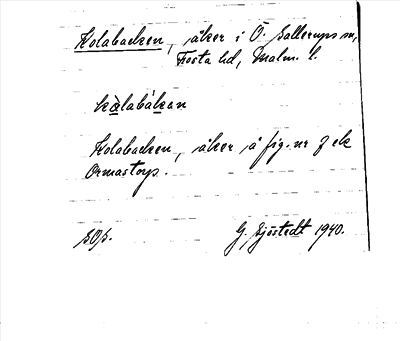 Kolabacken, åker i Ö. Sallerups sn,
Frosta hd, Malm. l.
kòlabákan
Kolabacken, åker å fig. nr 7 ek
Ormastorp.
G. Sjöstedt 1940.